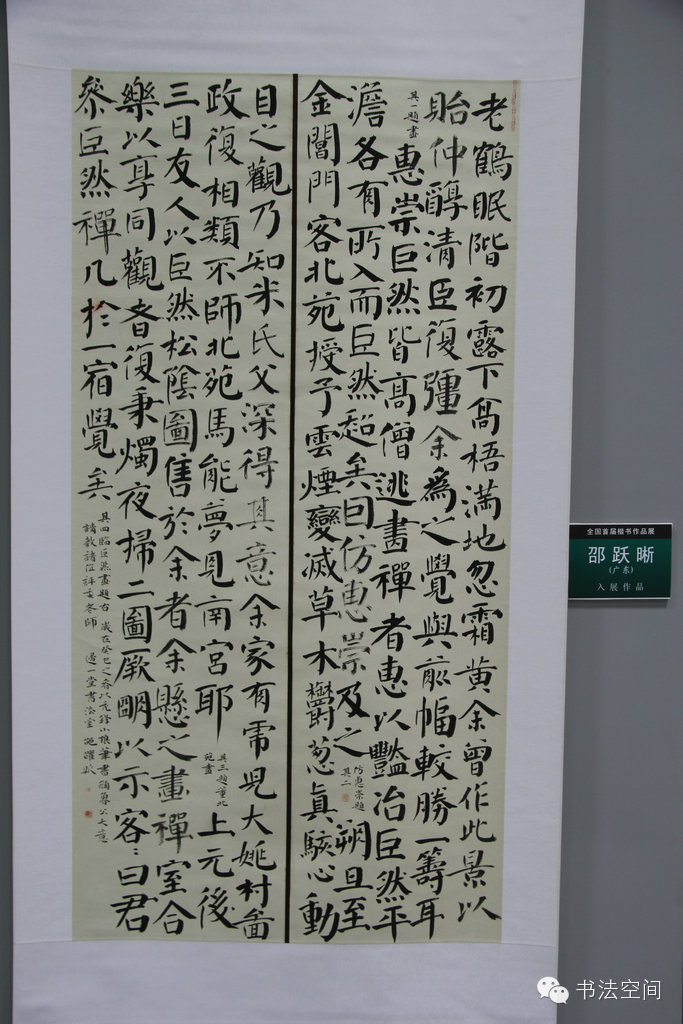 老鶴眠階初露下高梧滿地忽霜黃余曾作此景以
貽仲醇清臣復彊余為之覺與前幅較勝一籌耳
其一題畫
惠崇巨然皆高僧逃畫禪者惠以豔冶巨然平
澹各有所入而巨然超矣因仿惠崇及之
仿惠崇題
其二
朔旦至
金閶門客北苑授予雲煙變滅草木鬱葱真駭心動
目之觀乃知米氏父深得其意余家有虎兒大姚村圖
政復相類不師北苑焉能夢見南宮耶
其三題董北
苑畫
上元後
三日友人以巨然松陰圖售於余者余懸之畫禪室合
樂以享同觀者復秉燭夜掃二圖厥明以示客客曰君
參巨然禪几於一宿覺矣
其四臨巨然畫題右
歲在癸巳之春以
書顏魯公大意
諸教諸位評委老師
邊一堂書
全国首届楷书作品展
邵跃晰
(广东)
入展作品
书法空间